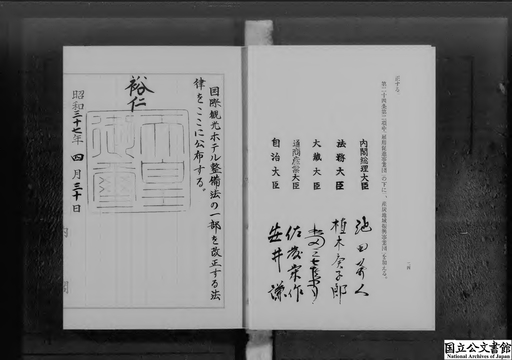 正する。
内閣総理大臣 池田勇人
法務大臣 植木庚子郎
大蔵大臣
通商産業大臣 佐藤栄作
自治大臣 安井謙
国際観光ホテル整備法の一部を改正する法
律をここに公布する。
裕仁
天皇御璽
昭和三十七年四月三十日
国立公文書館
National Archives of Japan